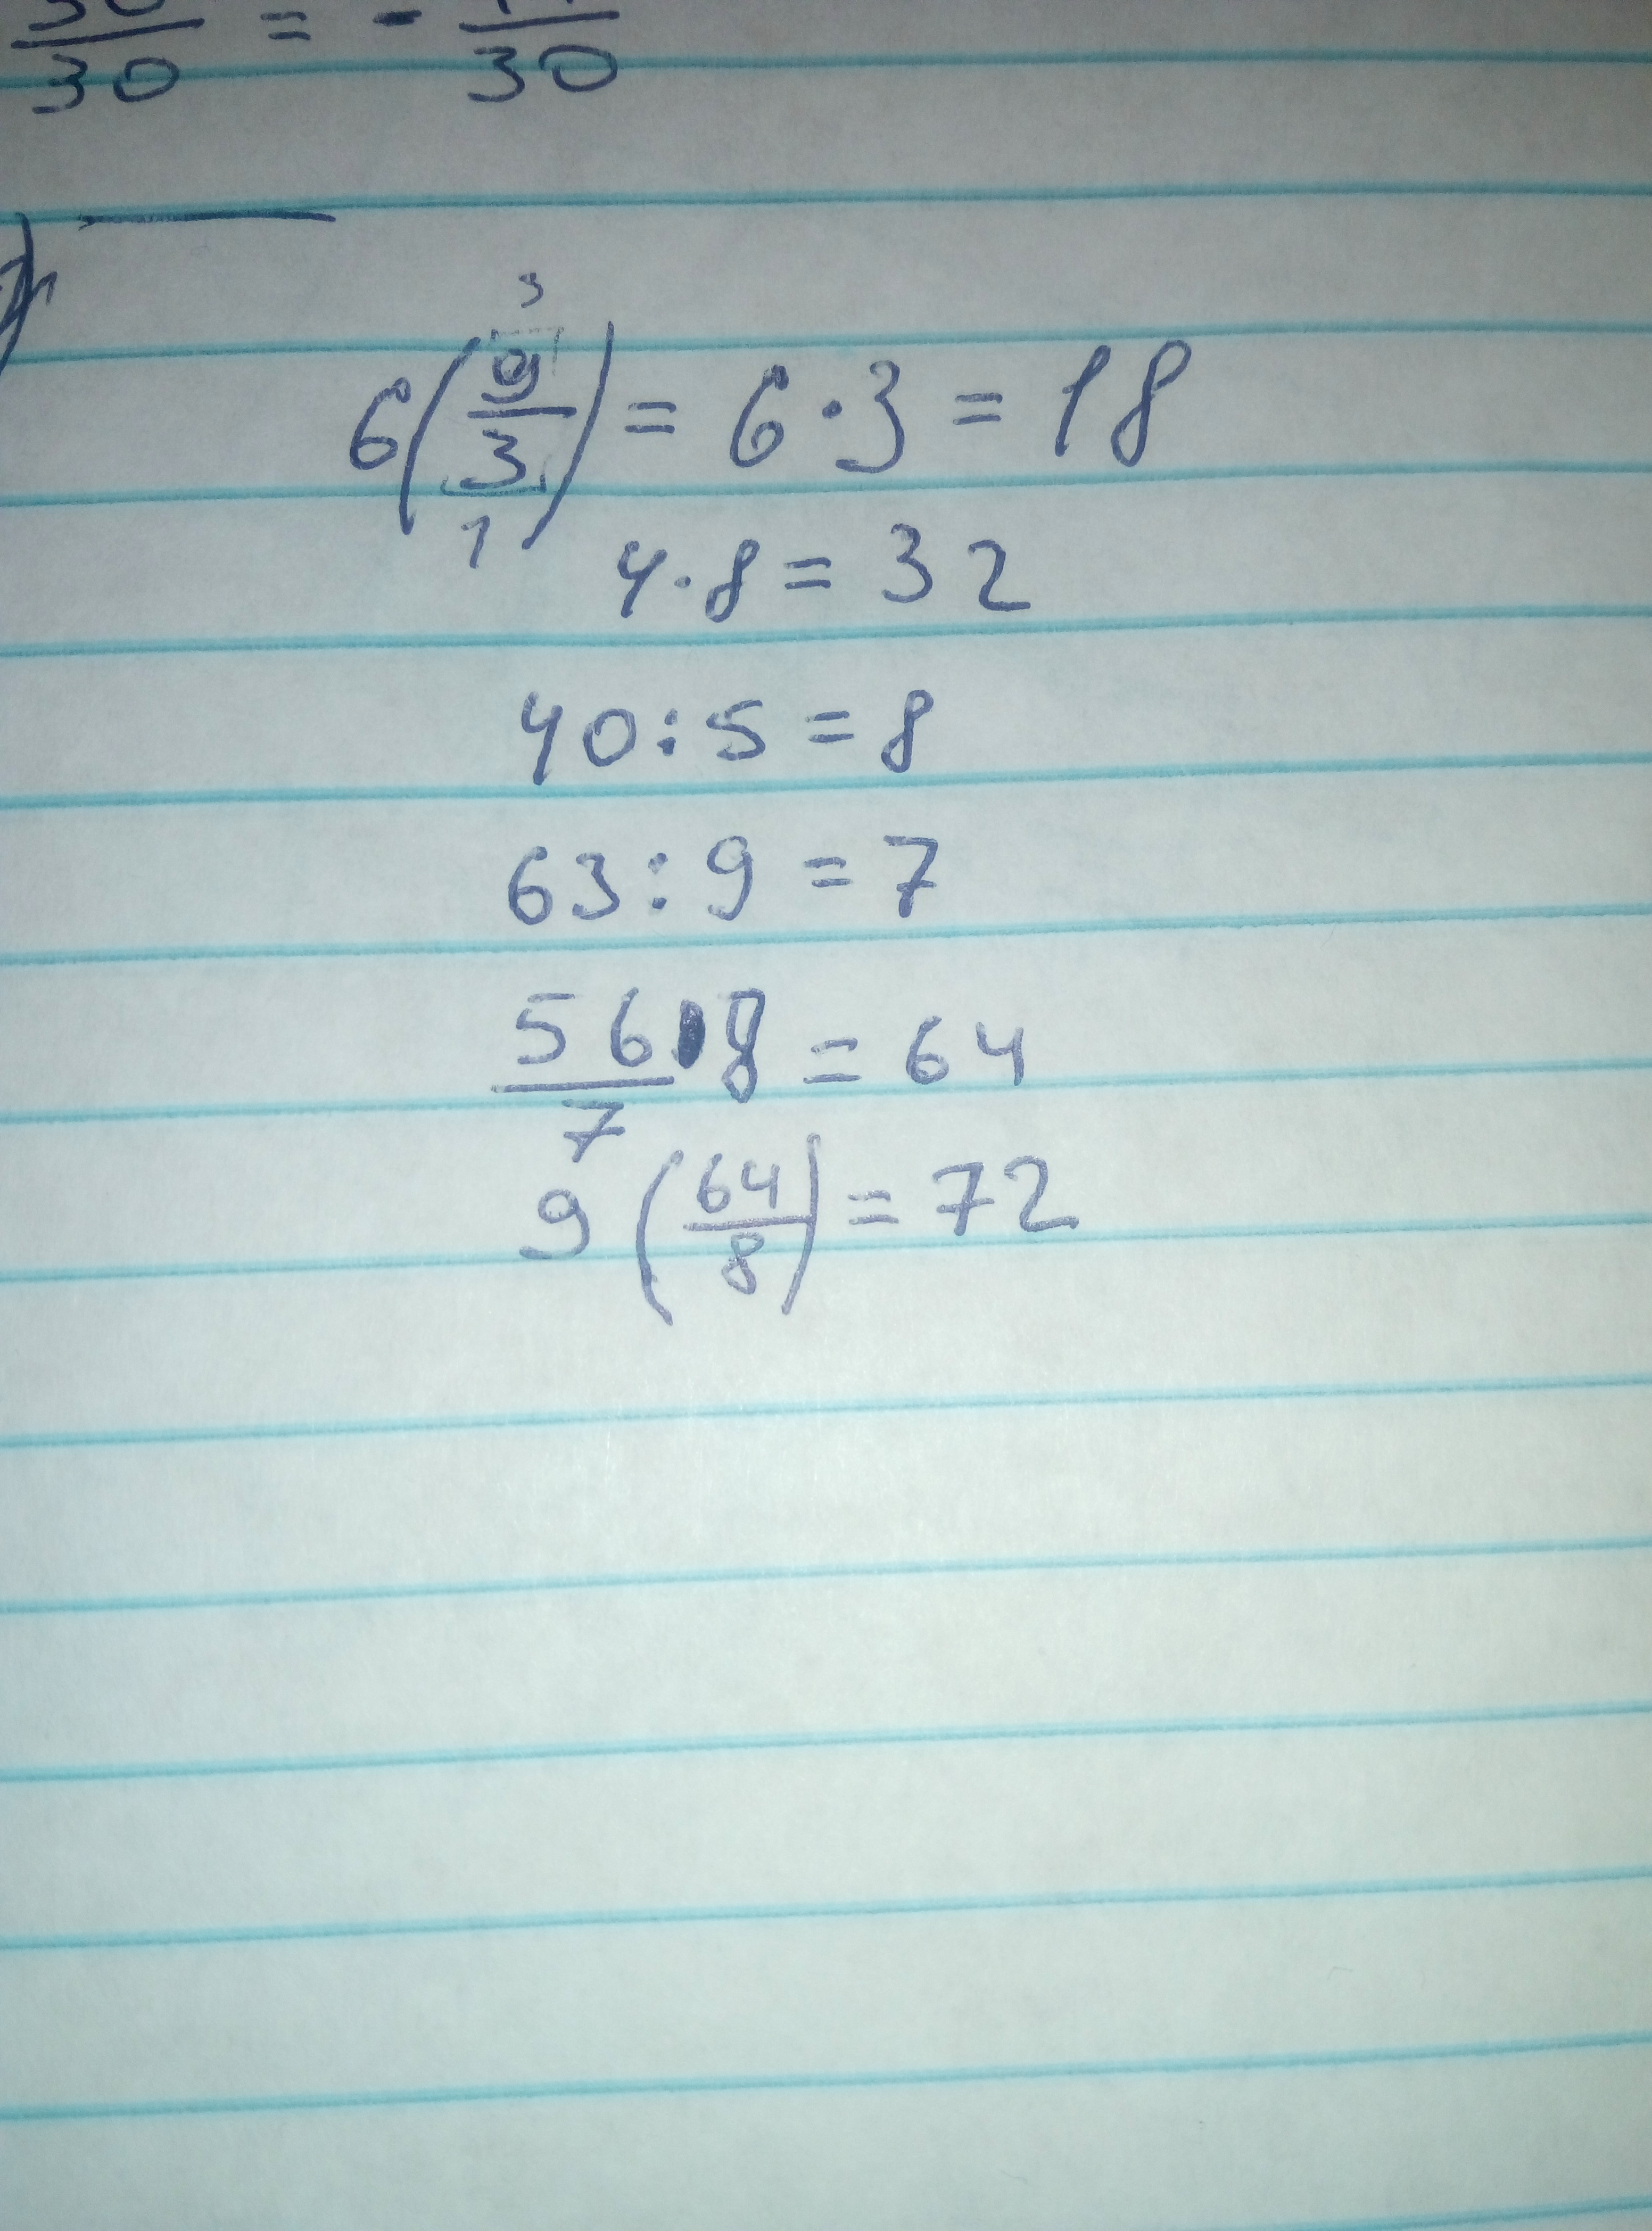 30 = - 30
3
6(9/3) = 6·3 = 18
1
4·8 = 32
40:5 = 8
63:9 = 7
56/7 · 8 = 64
9(64/8) = 72